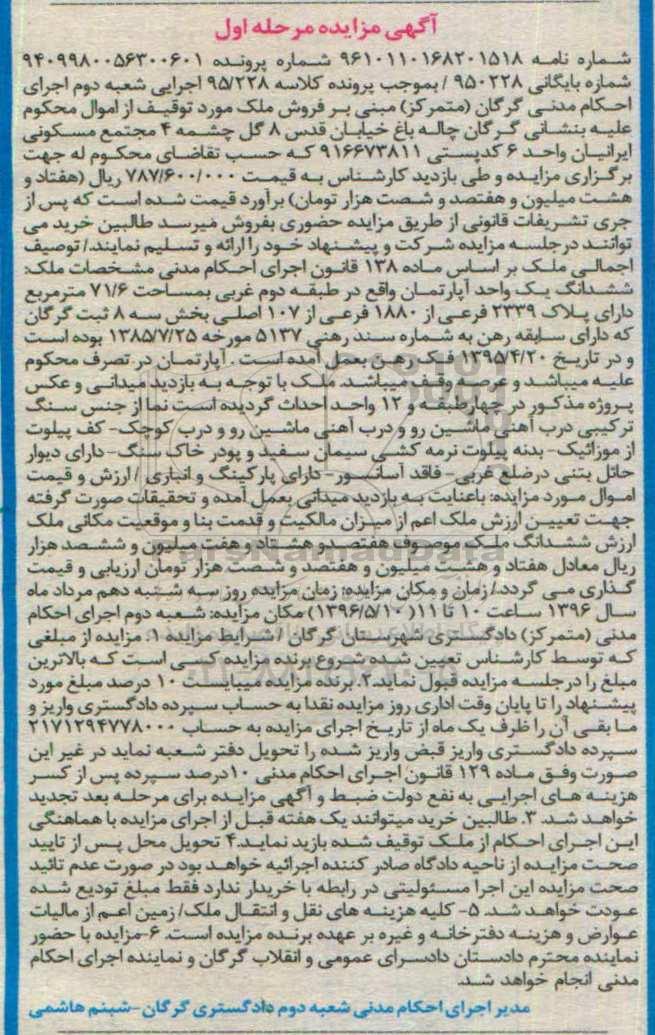 آگهی مزایده مرحله اول
شماره نامه ۹۶۱۰۱۱۰۱۶۸۲۰۱۵۱۸ شماره پرونده ۹۴۰۹۹۸۰۰۵۶۳۰۰۶۰۱
شماره بایگانی ۹۵۰۲۲۸ / بموجب پرونده کلاسه ۹۵/۲۲۸ اجرایی شعبه دوم اجرای
احکام مدنی گرگان (متمرکز) مبنی بر فروش ملک مورد توقیف از اموال محکوم
علیه بنشانی گرگان چاله باغ خیابان قدس ۸ گل چشمه ۴ مجتمع مسکونی
ایرانیان واحد ۶ کدپستی ۹۱۶۶۷۳۸۱۱ که حسب تقاضای محکوم له جهت
برگزاری مزایده و طی بازدید کارشناس به قیمت ۷۸۷/۶۰۰/۰۰۰ ریال (هفتاد و
هشت میلیون و هفتصد و شصت هزار تومان) برآورد قیمت شده است که پس از
جری تشریفات قانونی از طریق مزایده حضوری بفروش میرسد طالبین خرید می
توانند درجلسه مزایده شرکت و پیشنهاد خود را ارائه و تسلیم نمایند./ توصیف
اجمالی ملک بر اساس ماده ۱۳۸ قانون اجرای احکام مدنی مشخصات ملک:
ششدانگ یک واحد آپارتمان واقع در طبقه دوم غربی بمساحت ۷۱/۶ مترمربع
دارای پلاک ۲۳۳۹ فرعی از ۱۸۸۰ فرعی از ۱۰۷ اصلی بخش سه ۸ ثبت گرگان
که دارای سابقه رهن به شماره سند رهنی ۵۱۳۷ مورخه ۱۳۸۵/۷/۲۵ بوده است
و در تاریخ ۱۳۹۵/۴/۲۰ فک رهن بعمل آمده است . آپارتمان در تصرف محکوم
علیه میباشد و عرصه وقف میباشد. ملک با توجه به بازدید میدانی و عکس
پروژه مذکور در چهارطبقه و ۱۲ واحد احداث گردیده است نما از جنس سنگ
ترکیبی درب آهنی ماشین رو و درب آهنی ماشین رو و درب کوچک- کف پیلوت
از موزائیک- بدنه پیلوت نرمه کشی سیمان سفید و پودر خاک سنگ- دارای دیوار
حائل بتنی درضلع غربی- فاقد آسانسور- دارای پارکینگ و انباری / ارزش و قیمت
اموال مورد مزایده: باعنایت به بازدید میدانی بعمل آمده و تحقیقات صورت گرفته
جهت تعیین ارزش ملک اعم از میزان مالکیت و قدمت بنا و موقعیت مکانی ملک
ارزش ششدانگ ملک موصوف هفتصد و هشتاد و هفت میلیون و ششصد هزار
ریال معادل هفتاد و هشت میلیون و هفتصد و شصت هزار تومان ارزیابی و قیمت
گذاری می گردد./ زمان و مکان مزایده: زمان مزایده روز سه شنبه دهم مرداد ماه
سال ۱۳۹۶ ساعت ۱۰ تا ۱۱( ۱۳۹۶/۵/۱۰) مکان مزایده: شعبه دوم اجرای احکام
مدنی (متمرکز) دادگستری شهرستان گرگان / شرایط مزایده ۱. مزایده از مبلغی
که توسط کارشناس تعیین شده شروع برنده مزایده کسی است که بالاترین
مبلغ را درجلسه مزایده قبول نماید.۲. برنده مزایده میبایست ۱۰ درصد مبلغ مورد
پیشنهاد را تا پایان وقت اداری روز مزایده نقدا به حساب سپرده دادگستری واریز و
ما بقی آن را ظرف یک ماه از تاریخ اجرای مزایده به حساب ۲۱۷۱۲۹۴۷۷۸۰۰۰
سپرده دادگستری واریز قبض واریز شده را تحویل دفتر شعبه نماید در غیر این
صورت وفق ماده ۱۲۹ قانون اجرای احکام مدنی ۱۰درصد سپرده پس از کسر
هزینه های اجرایی به نفع دولت ضبط و آگهی مزایده برای مرحله بعد تجدید
خواهد شد. ۳. طالبین خرید میتوانند یک هفته قبل از اجرای مزایده با هماهنگی
این اجرای احکام از ملک توقیف شده بازید نماید.۴ تحویل محل پس از تایید
صحت مزایده از ناحیه دادگاه صادر کننده اجرائیه خواهد بود در صورت عدم تائید
صحت مزایده این اجرا مسئولیتی در رابطه با خریدار ندارد فقط مبلغ تودیع شده
عودت خواهد شد. ۵- کلیه هزینه های نقل و انتقال ملک/ زمین اعم از مالیات
عوارض و هزینه دفترخانه و غیره بر عهده برنده مزایده است. ۶-مزایده با حضور
نماینده محترم دادستان دادسرای عمومی و انقلاب گرگان و نماینده اجرای احکام
مدنی انجام خواهد شد.
مدیر اجرای احکام مدنی شعبه دوم دادگستری گرگان -شبنم هاشمی